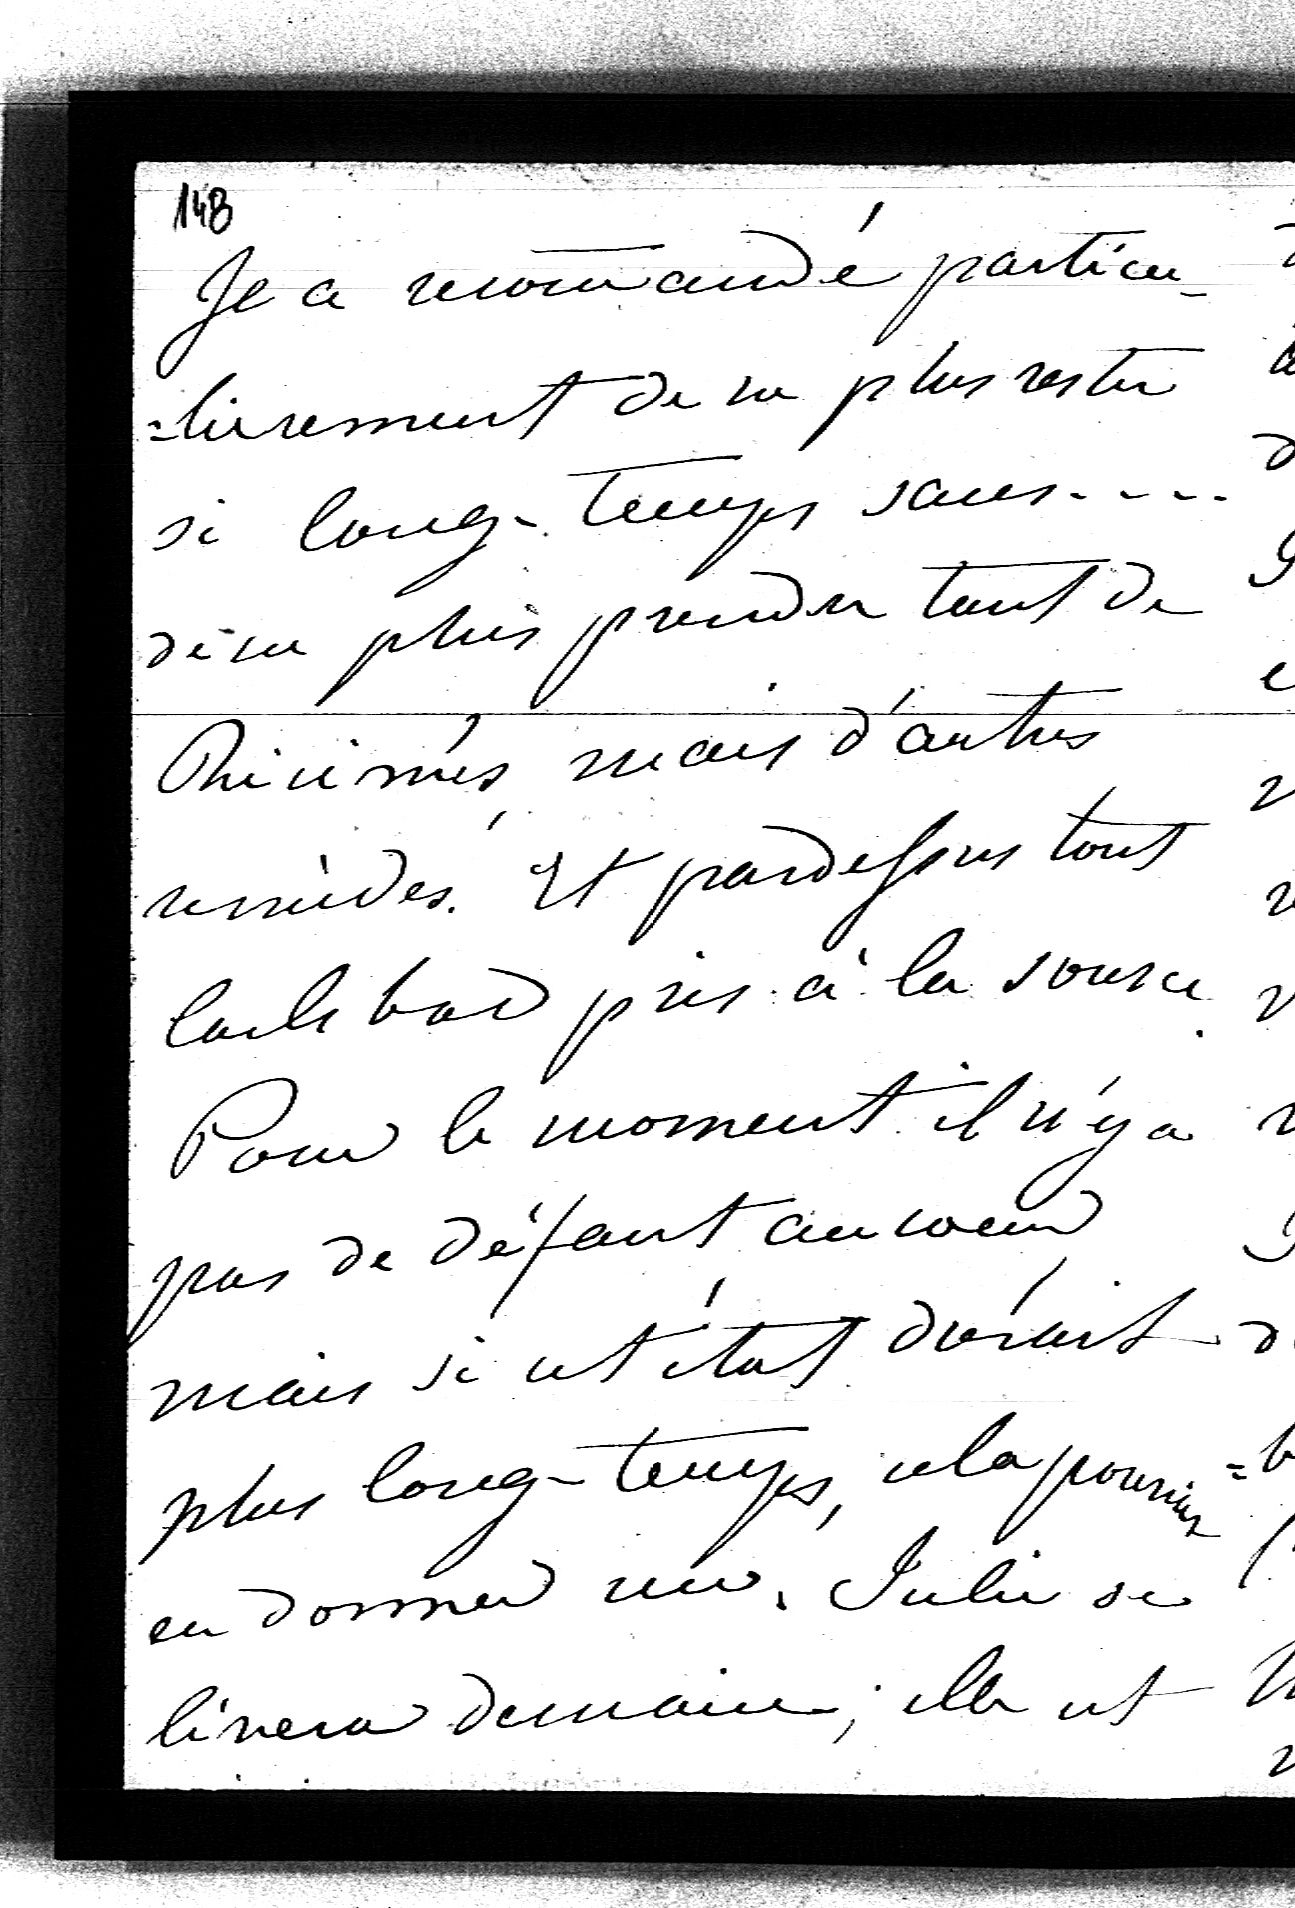 148
Il a recommandé particu-
=lièrement de ne plus rester
si long-temps sans....
de ne plus prendre tant de
mais d'autres
remèdes. Et pardessus tout
Carlsbad pris à la source.
Pour le moment il n'y a
pas de défaut au cœur
mais si cet état durait
plus long-temps, cela pourrait
en donner un. Julie se
lèvera demain; elle est